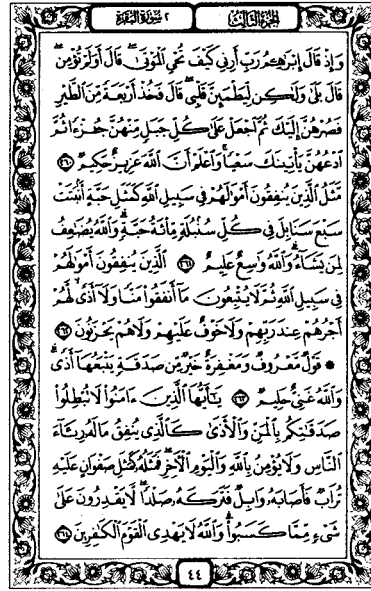 الجزء الثالث ٢ سورة البقرة
وَإِذْ قَالَ إِبْرَٰهِـۧمُ رَبِّ أَرِنِي كَيْفَ تُحْيِ ٱلْمَوْتَىٰۖ قَالَ أَوَلَمْ تُؤْمِنۖ
قَالَ بَلَىٰ وَلَٰكِن لِّيَطْمَئِنَّ قَلْبِيۖ قَالَ فَخُذْ أَرْبَعَةً مِّنَ ٱلطَّيْرِ
فَصُرْهُنَّ إِلَيْكَ ثُمَّ ٱجْعَلْ عَلَىٰ كُلِّ جَبَلٍ مِّنْهُنَّ جُزْءًا ثُمَّ
ٱدْعُهُنَّ يَأْتِينَكَ سَعْيًاۚ وَٱعْلَمْ أَنَّ ٱللَّهَ عَزِيزٌ حَكِيمٌ ٢٦٠
مَّثَلُ ٱلَّذِينَ يُنفِقُونَ أَمْوَٰلَهُمْ فِي سَبِيلِ ٱللَّهِ كَمَثَلِ حَبَّةٍ أَنۢبَتَتْ
سَبْعَ سَنَابِلَ فِي كُلِّ سُنۢبُلَةٍ مِّا۟ئَةُ حَبَّةٍۗ وَٱللَّهُ يُضَٰعِفُ
لِمَن يَشَآءُۚ وَٱللَّهُ وَٰسِعٌ عَلِيمٌ ٢٦١ ٱلَّذِينَ يُنفِقُونَ أَمْوَٰلَهُمْ
فِي سَبِيلِ ٱللَّهِ ثُمَّ لَا يُتْبِعُونَ مَآ أَنفَقُوا۟ مَنًّا وَلَآ أَذًىۙ لَّهُمْ
أَجْرُهُمْ عِندَ رَبِّهِمْ وَلَا خَوْفٌ عَلَيْهِمْ وَلَا هُمْ يَحْزَنُونَ ٢٦٢
۞ قَوْلٌ مَّعْرُوفٌ وَمَغْفِرَةٌ خَيْرٌ مِّن صَدَقَةٍ يَتْبَعُهَآ أَذًىۗ
وَٱللَّهُ غَنِيٌّ حَلِيمٌ ٢٦٣ يَٰٓأَيُّهَا ٱلَّذِينَ ءَامَنُوا۟ لَا تُبْطِلُوا۟
صَدَقَٰتِكُم بِٱلْمَنِّ وَٱلْأَذَىٰ كَٱلَّذِي يُنفِقُ مَالَهُۥ رِئَآءَ
ٱلنَّاسِ وَلَا يُؤْمِنُ بِٱللَّهِ وَٱلْيَوْمِ ٱلْـَٔاخِرِۖ فَمَثَلُهُۥ كَمَثَلِ صَفْوَانٍ عَلَيْهِ
تُرَابٌ فَأَصَابَهُۥ وَابِلٌ فَتَرَكَهُۥ صَلْدًاۖ لَّا يَقْدِرُونَ عَلَىٰ
شَيْءٍ مِّمَّا كَسَبُوا۟ۗ وَٱللَّهُ لَا يَهْدِي ٱلْقَوْمَ ٱلْكَٰفِرِينَ ٢٦٤
٤٤